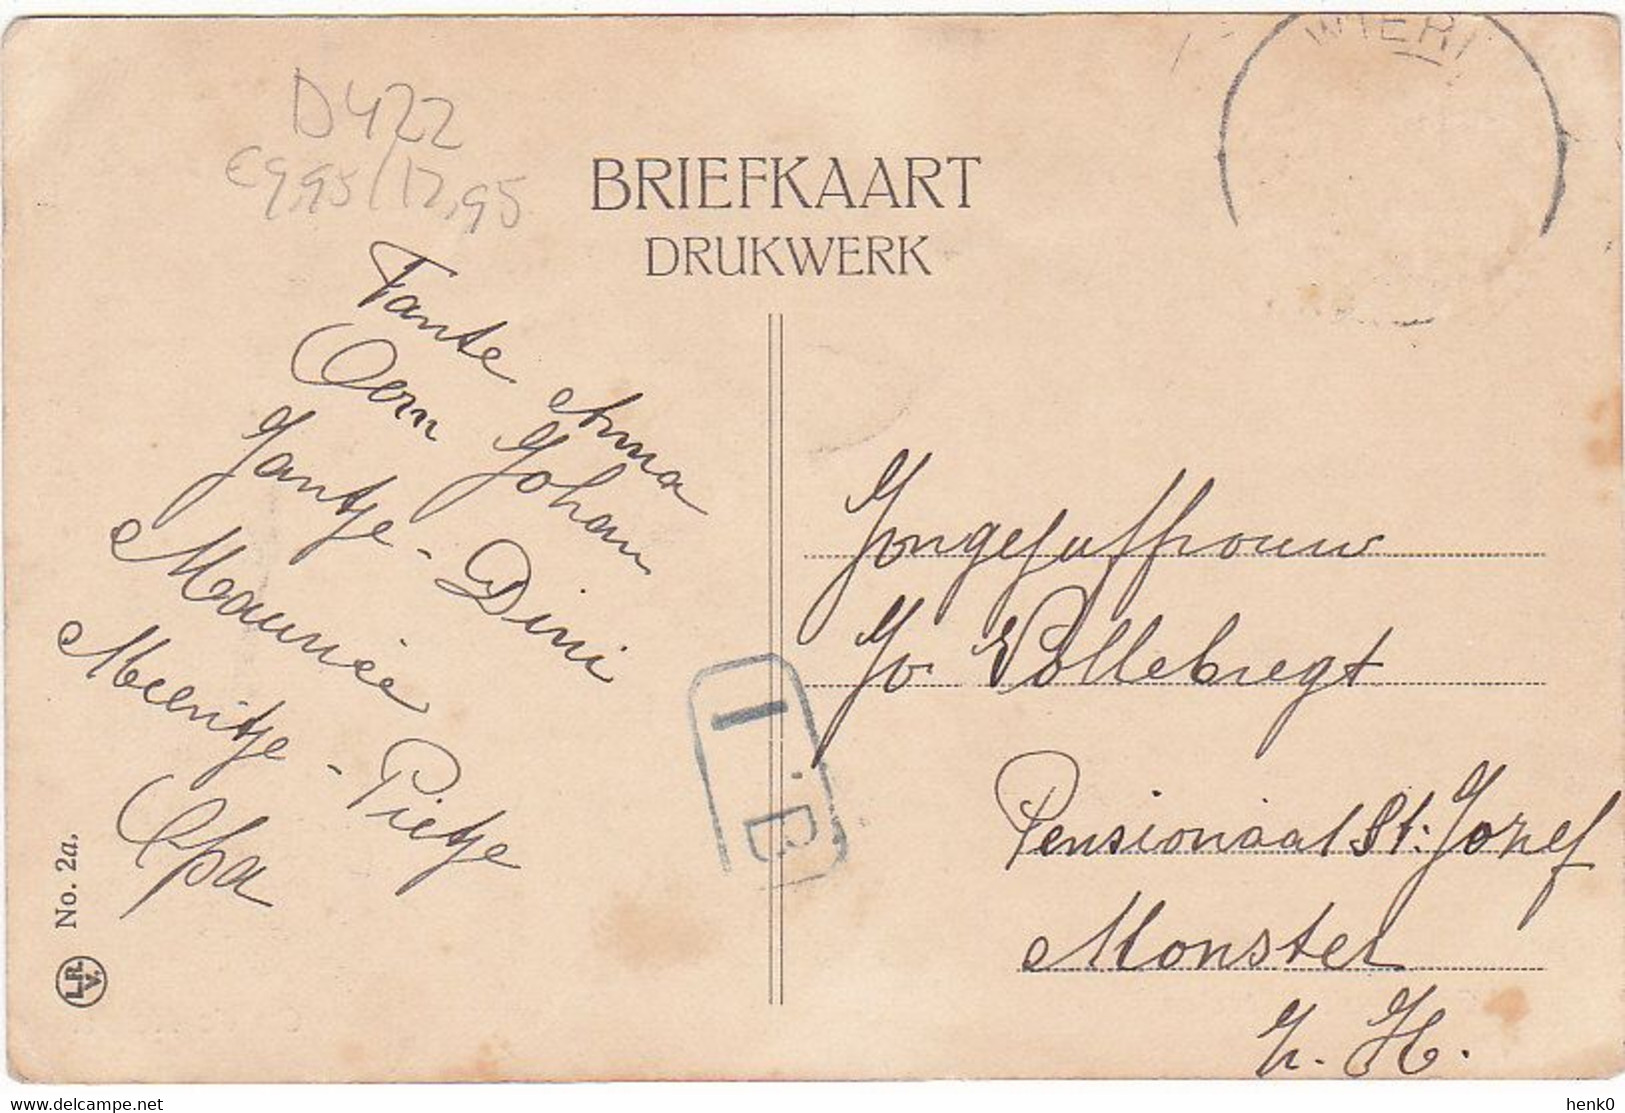 WIERI
D422
€9,95/12,95
BRIEFKAART
DRUKWERK
Tante Anna
Oom Johan
Jantje - Dini
Meeritje - Pietje
Opa
Jongejuffrouw
Jo Vollebregt
Pensionaat St. Jozef
Monster
Z. H.
I B
No. 2a.
L.R.V.
delcampe.net
henk0